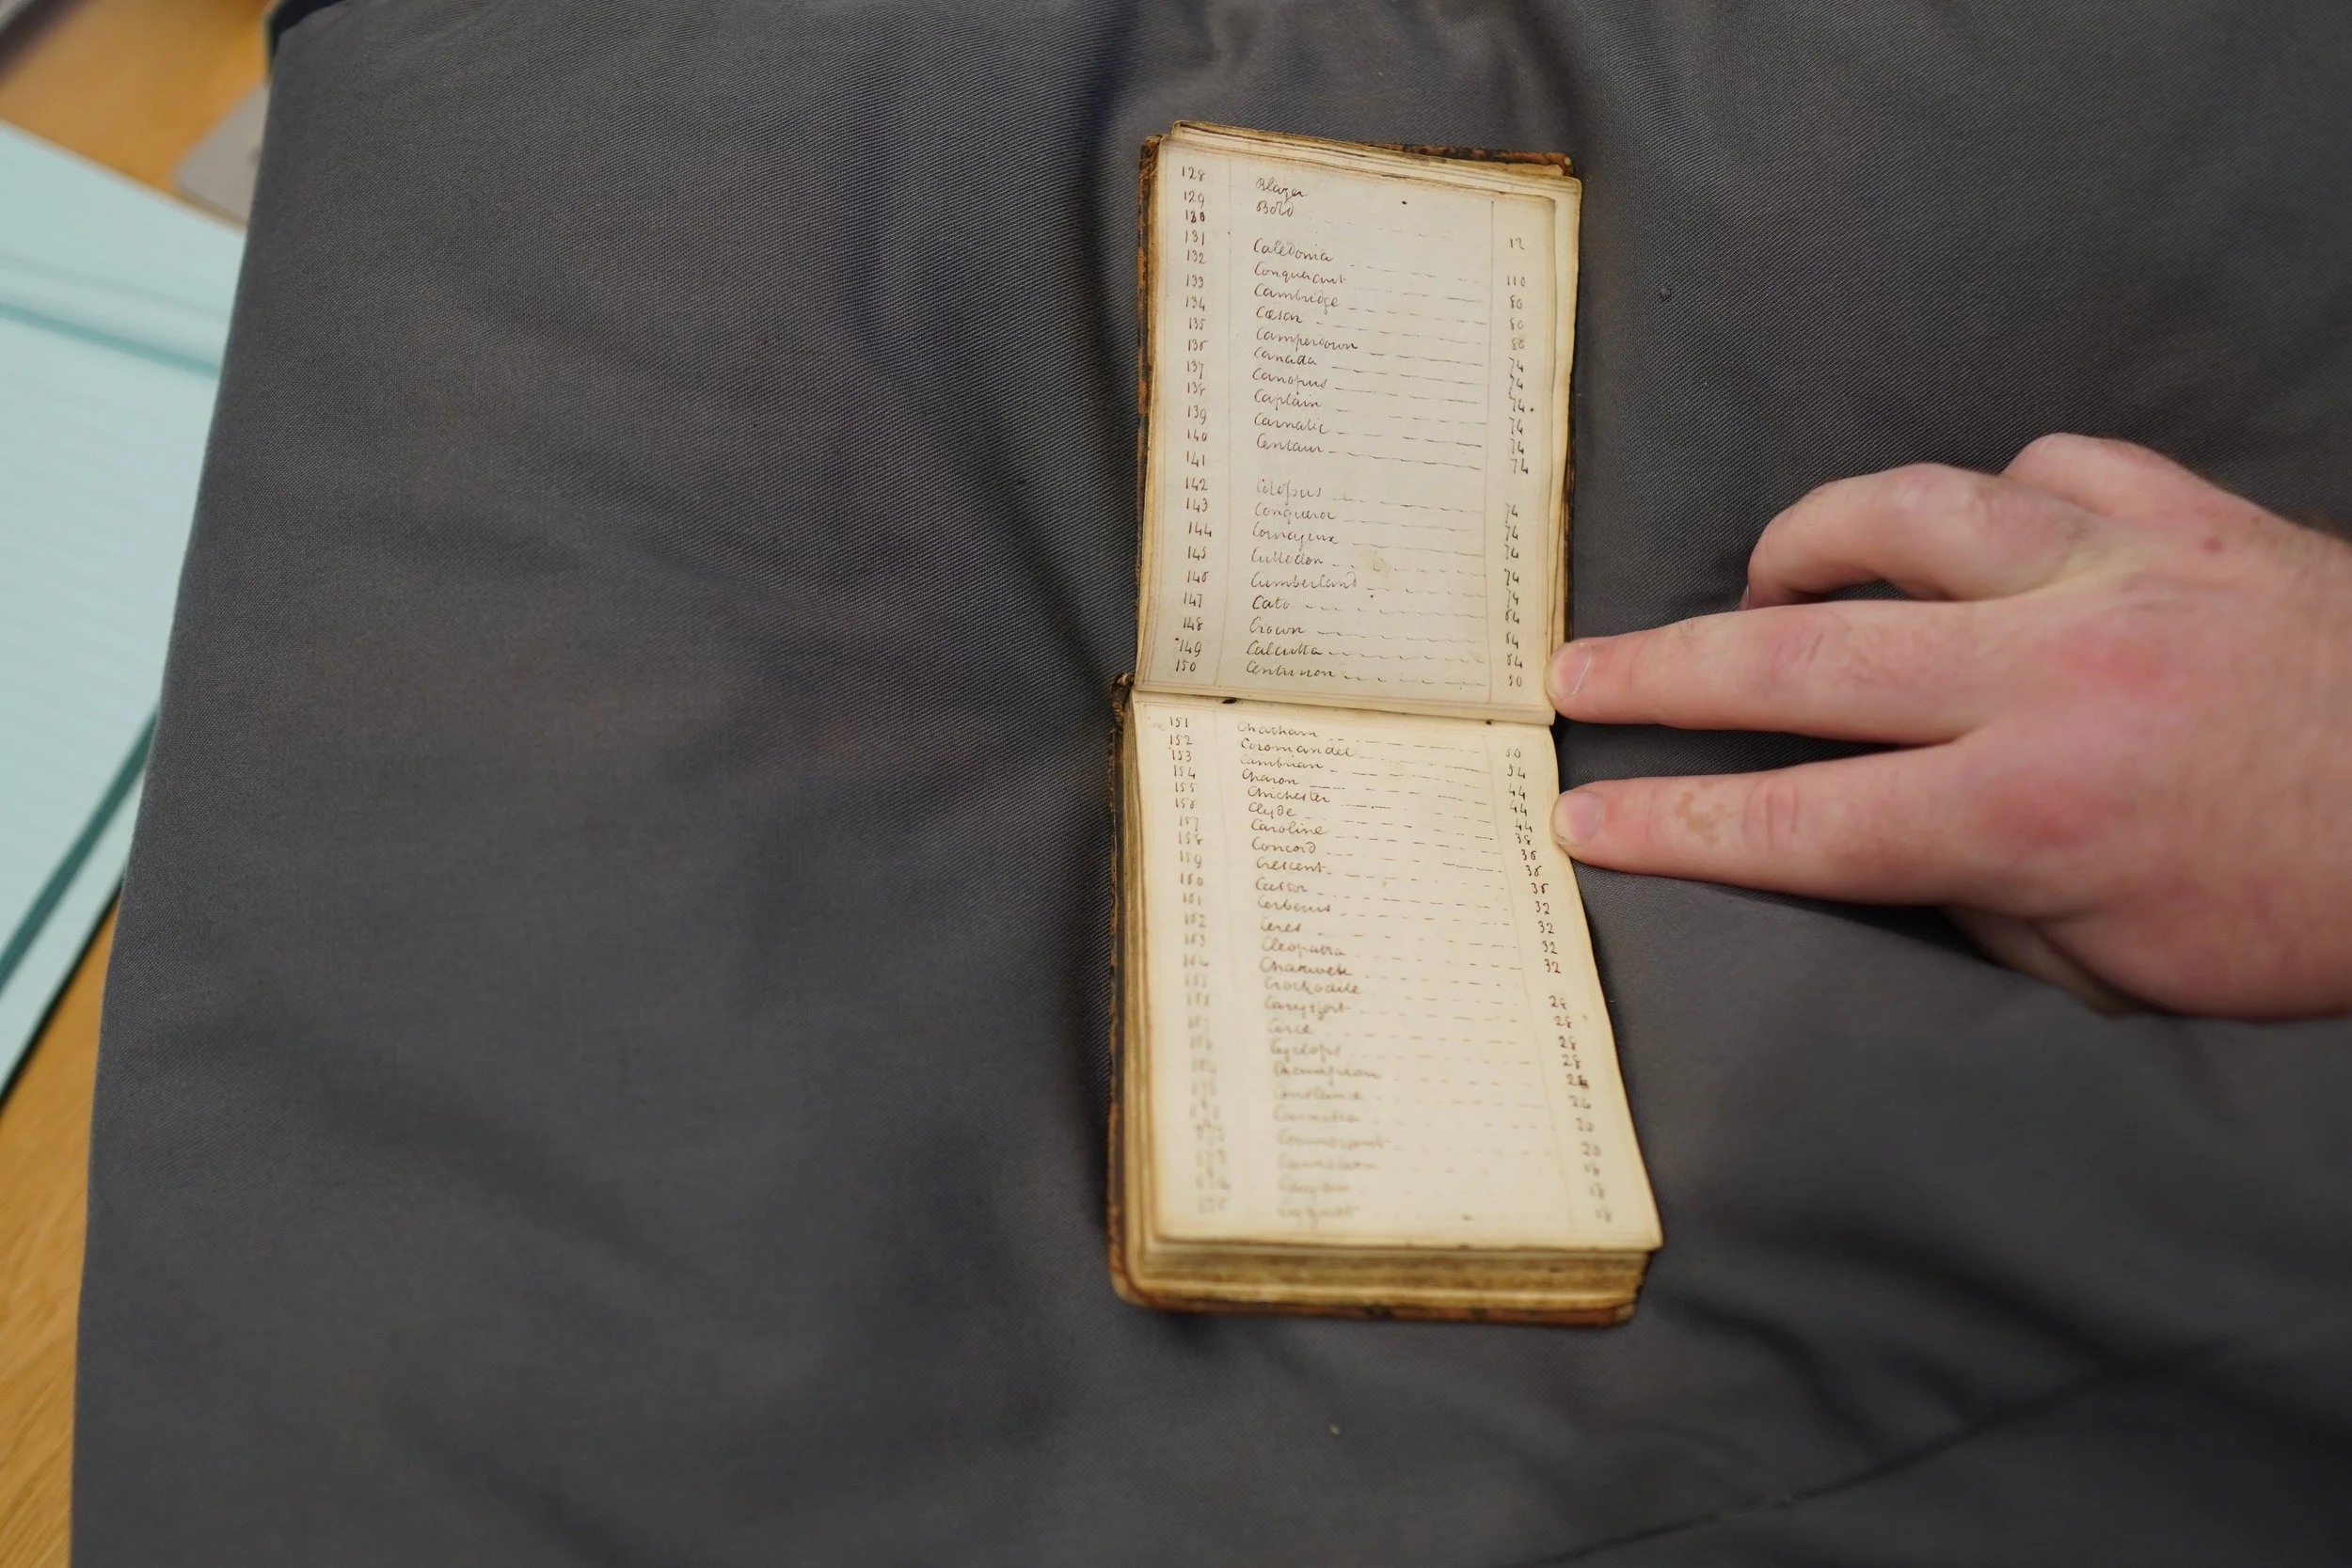 128 Blazer
129 Bold 12
130
131 Caledonia 110
132 Conquerant 80
133 Cambridge 80
134 Cæsar 80
135 Camperdown 74
136 Canada 74
137 Canopus 74
138 Captain 74
139 Carnatic 74
140 Centaur 74
141
142 74
143 Conqueror 74
144 Courageux 74
145 Culloden 74
146 Cumberland 74
147 Cato 64
148 Crown 64
149 Calcutta 54
150 Centurion 50
151 Chatham 50
152 Coromandel 54
153 Cambrian 44
154 Charon 44
155 Chichester 44
156 Clyde 38
157 Caroline 36
158 Concord 36
159 Crescent 36
160 Castor 32
161 Cerberus 32
162 Ceres 32
163 Cleopatra 32
164
Crockodile 28
Carysfort 28
Circe 28
Cyclops 28
Champion 24
24
20
20
18
18
18